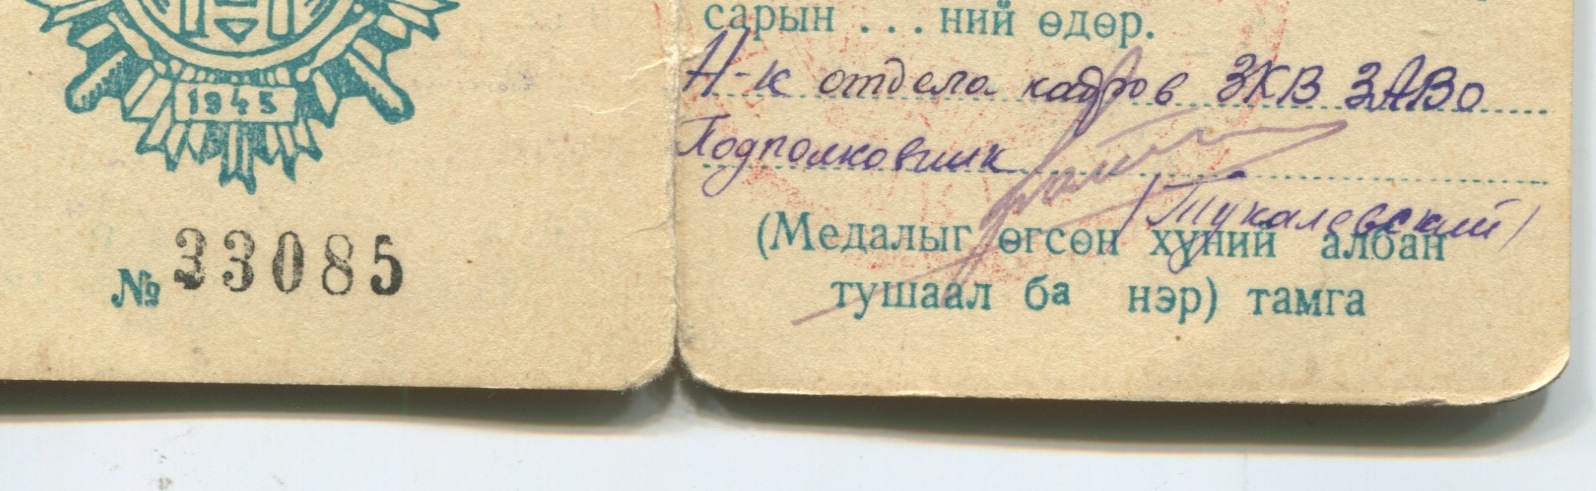 1945
№ 33085
сарын ... ний өдөр.
Н-к отдела кадров ЗКВ ЗАВО
Подполковник
/Тукалевский/
(Медалыг өгсөн хүний албан
тушаал ба нэр) тамга